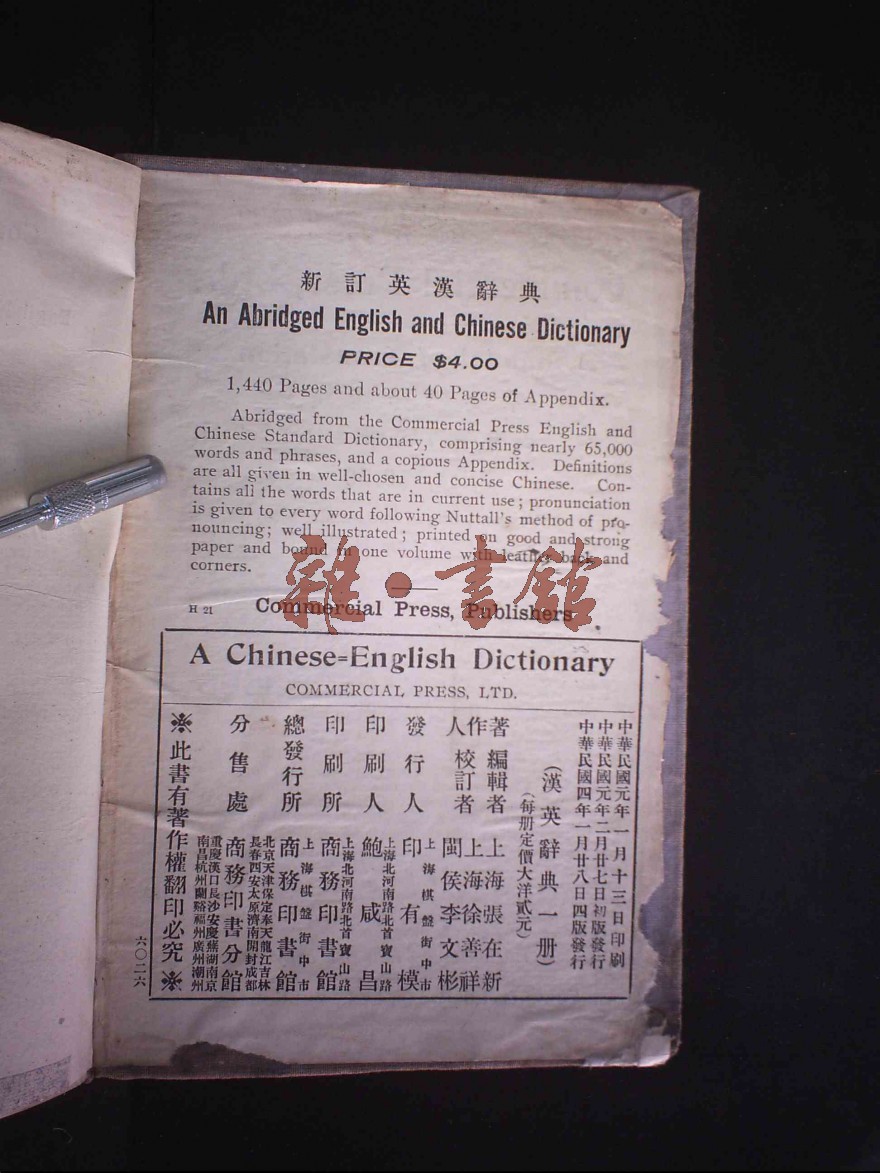 新訂英漢辭典
An Abridged English and Chinese Dictionary
PRICE $4.00
1,440 Pages and about 40 Pages of Appendix.
Abridged from the Commercial Press English and
Chinese Standard Dictionary, comprising nearly 65,000
words and phrases, and a copious Appendix. Definitions
are all given in well-chosen and concise Chinese. Con-
tains all the words that are in current use; pronunciation
is given to every word following Nuttall's method of pro-
nouncing; well illustrated; printed on good and strong
paper and bound in one volume with leather back and
corners.
H 21 Commercial Press, Publishers
雜·書館
A Chinese=English Dictionary
COMMERCIAL PRESS, LTD.
中華民國元年一月十三日印刷
中華民國元年二月廿七日初版發行
中華民國四年一月廿八日四版發行
(漢英辭典一册)
(每册定價大洋貳元)
著作人
編輯者 上海張在新
校訂者 上海徐善祥
閩侯李文彬
發行人 上海棋盤街中市
印有模
印刷人 上海北河南路北首寶山路
鮑咸昌
印刷所 上海北河南路北首寶山路
商務印書館
總發行所 上海棋盤街中市
商務印書館
分售處 北京天津保定奉天龍江吉林
長春西安太原濟南開封成都
商務印書分館
重慶漢口長沙安慶蕪湖南京
南昌杭州蘭谿福州廣州潮州
※此書有著作權翻印必究※
六〇二六